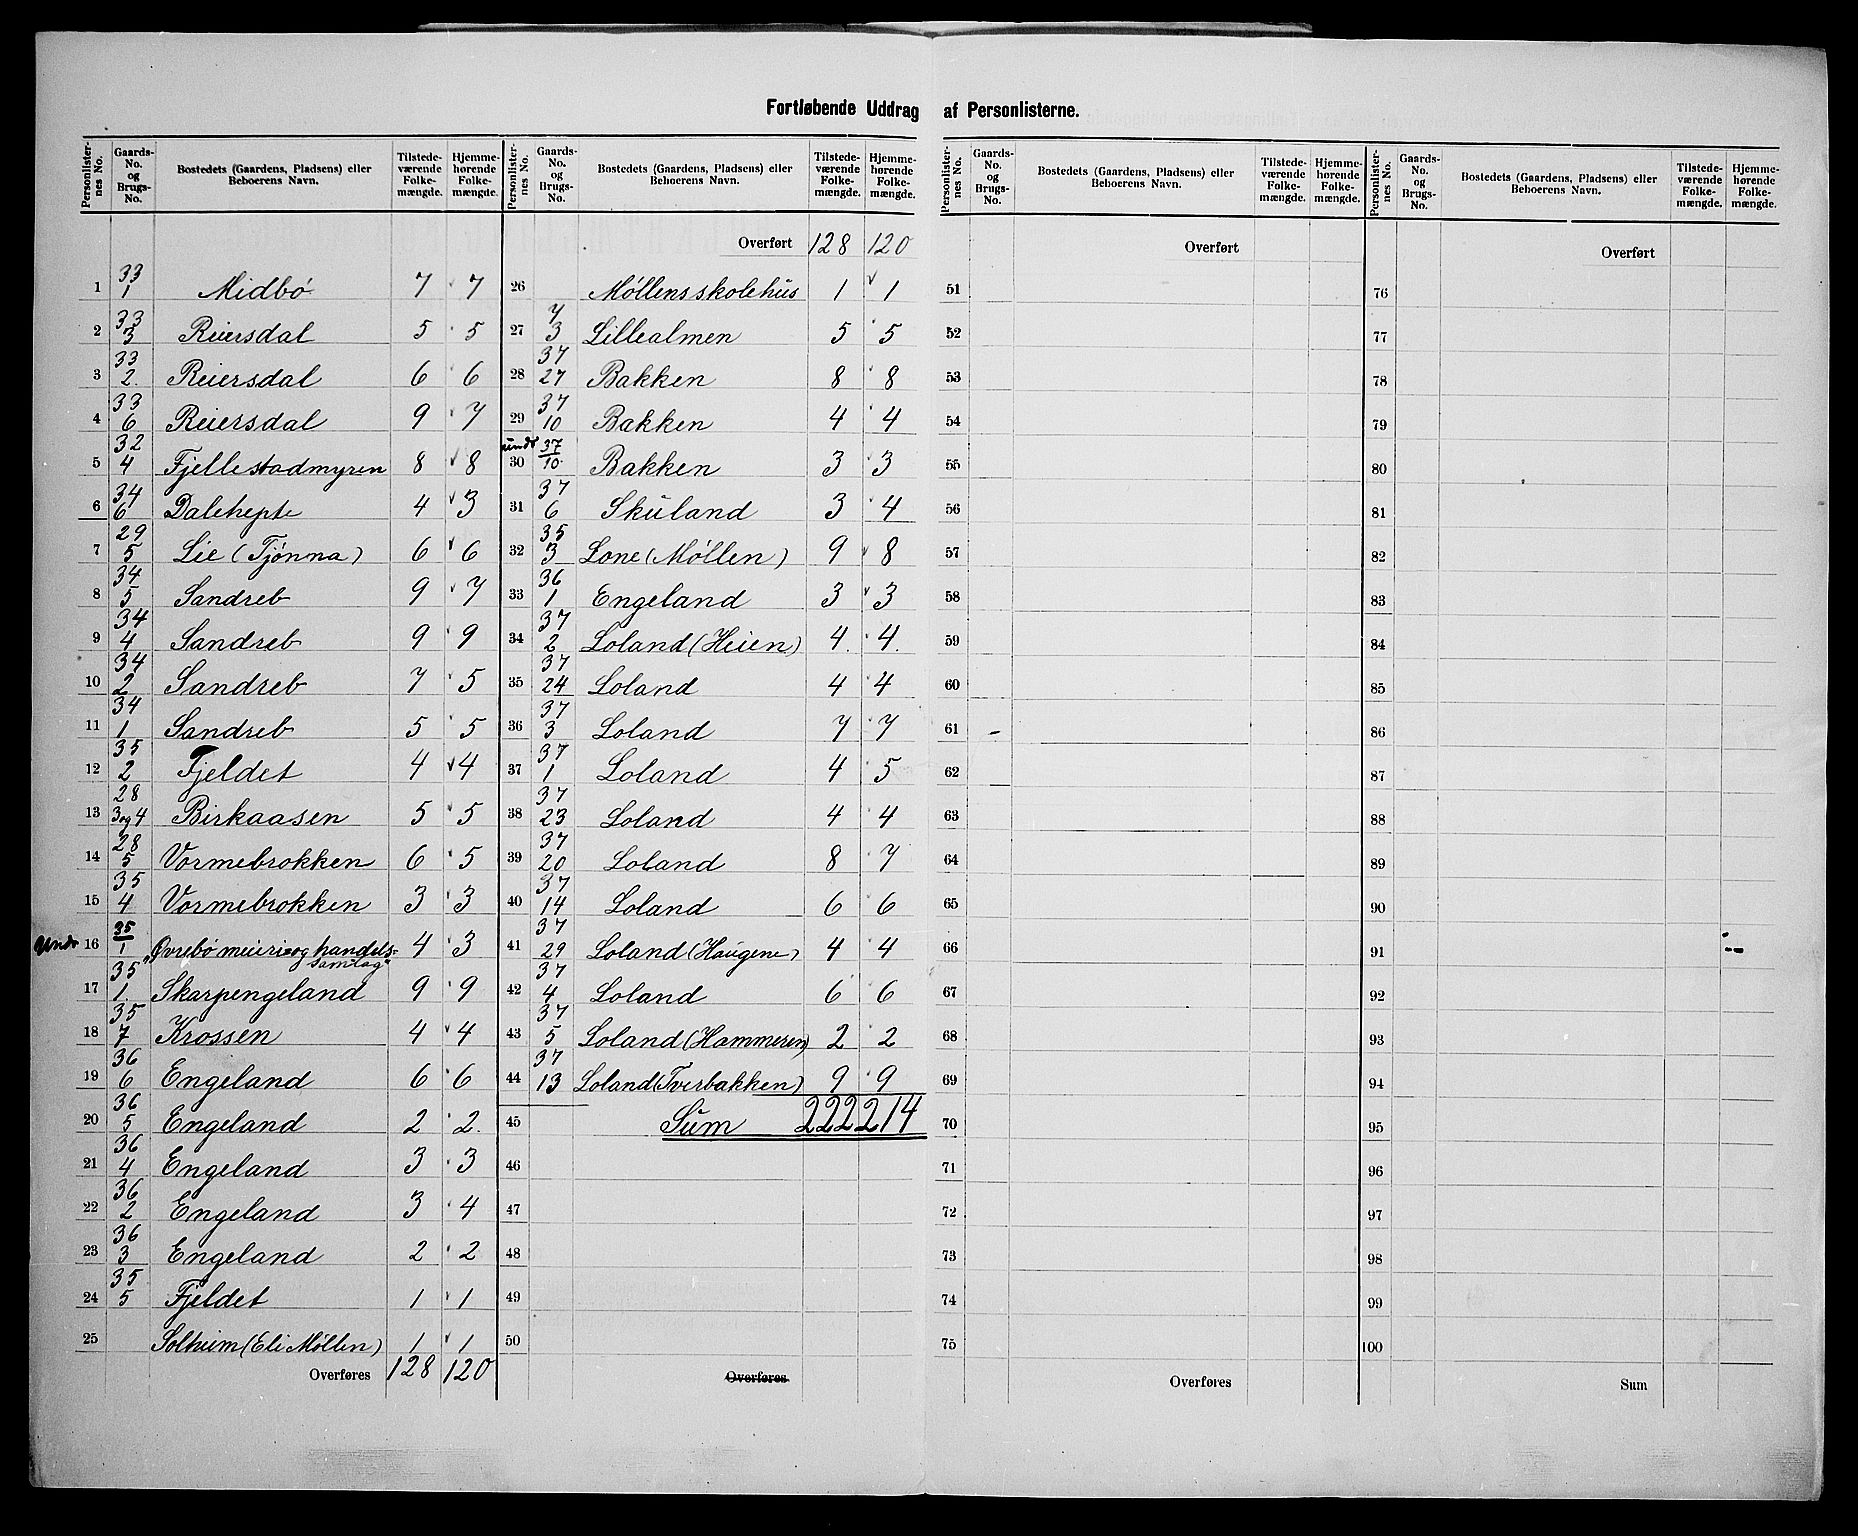 Fortløbende Uddrag af Personlisterne.
Personlister-nes No. | Gaards-No. og Brugs-No. | Bostedets (Gaardens, Pladsens) eller Beboerens Navn. | Tilstede-værende Folke-mængde. | Hjemme-hørende Folke-mængde.
1 33/1 Midbø 7 7
2 33/3 Reiersdal 5 5
3 33/2. Reiersdal 6 6
4 33/6 Reiersdal 9 7
5 32/4 Fjellestadmyren 8 8
6 34/6 Dalehepte 4 3
7 29/5 Lie (Tjønna) 6 6
8 34/5 Sandreb 9 7
9 34/4 Sandreb 9 9
10 34/2 Sandreb 7 5
11 34/1 Sandreb 5 5
12 35/2 Fjeldet 4 4
13 28/3og4 Birkaasen 5 5
14 28/5 Vormebrokken 6 5
15 35/4 Vormebrokken 3 3
Undr 16 35/1 "Øvrebø meieri og handels-samlag" 4 3
17 35/1. Skarpengeland 9 9
18 35/7 Krossen 4 4
19 36/6 Engeland 6 6
20 36/5 Engeland 2 2.
21 36/4 Engeland 3 3
22 36/2 Engeland 3 4
23 36/3 Engeland 2 2
24 35/5 Fjeldet 1 1
25 Solheim (Eli Møllen) 1 1
Overføres 128 120
Personlister-nes No. | Gaards-No. og Brugs-No. | Bostedets (Gaardens, Pladsens) eller Beboerens Navn. | Tilstede-værende Folke-mængde. | Hjemme-hørende Folke-mængde.
Overført 128 120
26 Møllens skolehus 1 1
27 7/3 Lillealmen 5 5
28 37/27 Bakken 8 8
29 37/10 Bakken 4 4
undr 30 37/10 Bakken 3 3
31 37/6 Skuland 3 4
32 35/3 Lone (Møllen) 9 8
33 36/1 Engeland 3 3
34 37/2 Loland (Heien) 4. 4.
35 37/24 Loland 4 4
36 37/3 Loland 7 7
37 37/1 Loland 4 5
38 37/23 Loland 4 4
39 37/20 Loland 8 7
40 37/14 Loland 6 6
41 37/29 Loland (Haugene) 4 4
42 37/4 Loland 6 6
43 37/5 Loland (Hammeren) 2 2
44 37/13 Loland (Tverbakken) 9 9
45 Sum 222 214
46
47
48
49
50
Overføres
Personlister-nes No. | Gaards-No. og Brugs-No. | Bostedets (Gaardens, Pladsens) eller Beboerens Navn. | Tilstede-værende Folke-mængde. | Hjemme-hørende Folke-mængde.
Overført
51
52
53
54
55
56
57
58
59
60
61
62
63
64
65
66
67
68
69
70
71
72
73
74
75
Overføres
Personlister-nes No. | Gaards-No. og Brugs-No. | Bostedets (Gaardens, Pladsens) eller Beboerens Navn. | Tilstede-værende Folke-mængde. | Hjemme-hørende Folke-mængde.
Overført
76
77
78
79
80
81
82
83
84
85
86
87
88
89
90
91
92
93
94
95
96
97
98
99
100
Sum